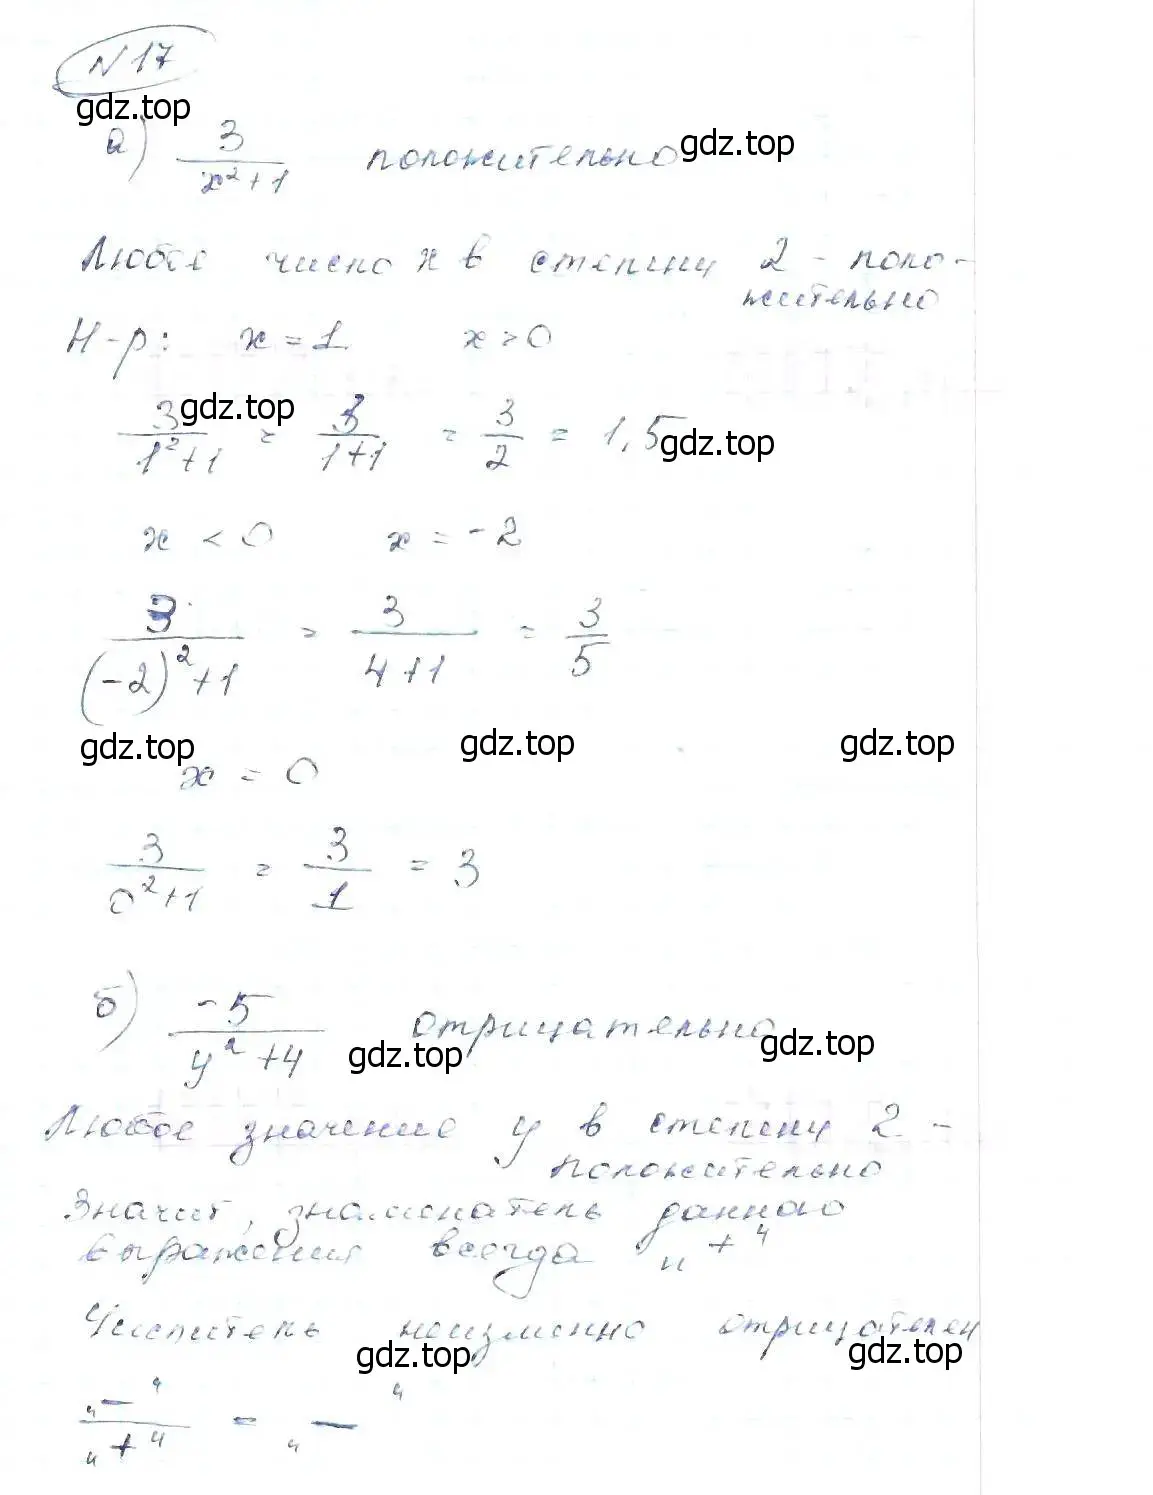 N 17
gdz.top
а) 3/(x²+1) положительно gdz.top
Любое число x в степени 2 - поло-
жительно
Н-р: x = 1 x > 0
3/(1²+1) = 3/(1+1) = 3/2 = 1,5
gdz.top gdz.top
x < 0 x = -2
3/((-2)²+1) = 3/(4+1) = 3/5
gdz.top gdz.top gdz.top
x = 0
3/(0²+1) = 3/1 = 3
б) -5/(y²+4) отрицательно
gdz.top gdz.top
Любое значение y в степени 2 -
положительно
Значит, знаменатель данного
выражения всегда "+"
Числитель неизменно отрицателен
gdz.top gdz.top
"-"/"+" = "-"